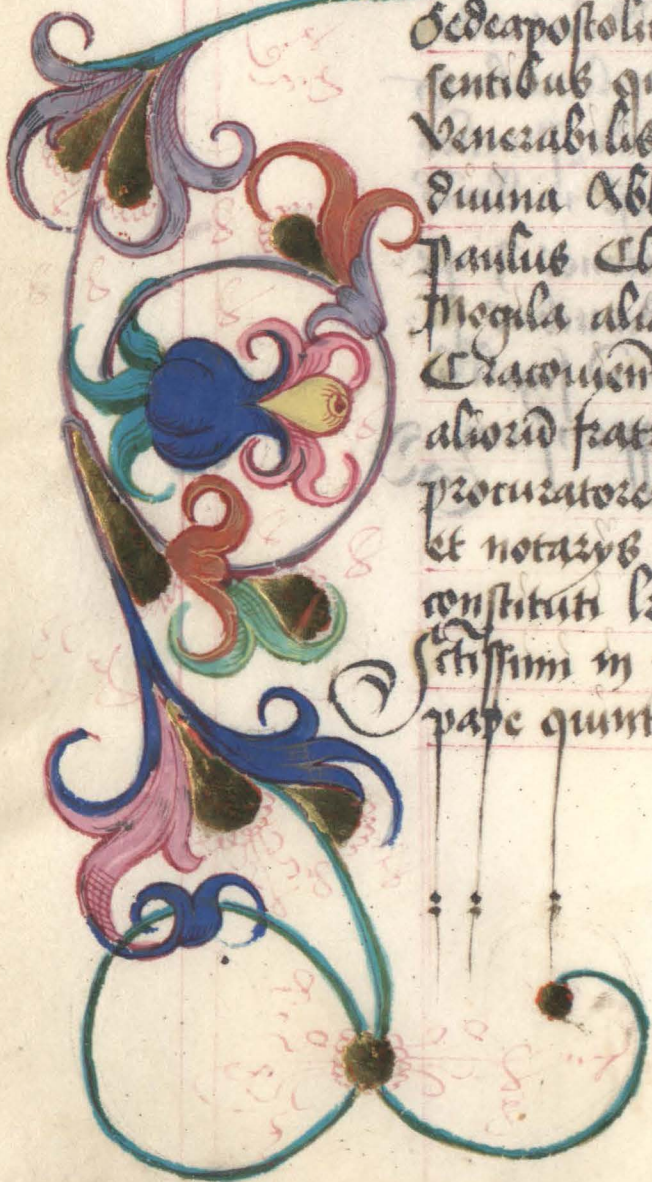 Sedeapostoli
sentibus qu
Venerabilis
diuina Abb
Paulus Cl
Mogila alia
Cracouien̄
aliorū fratr
procuratore
et notarÿs
constituti l
Sctissimi in
pape quint